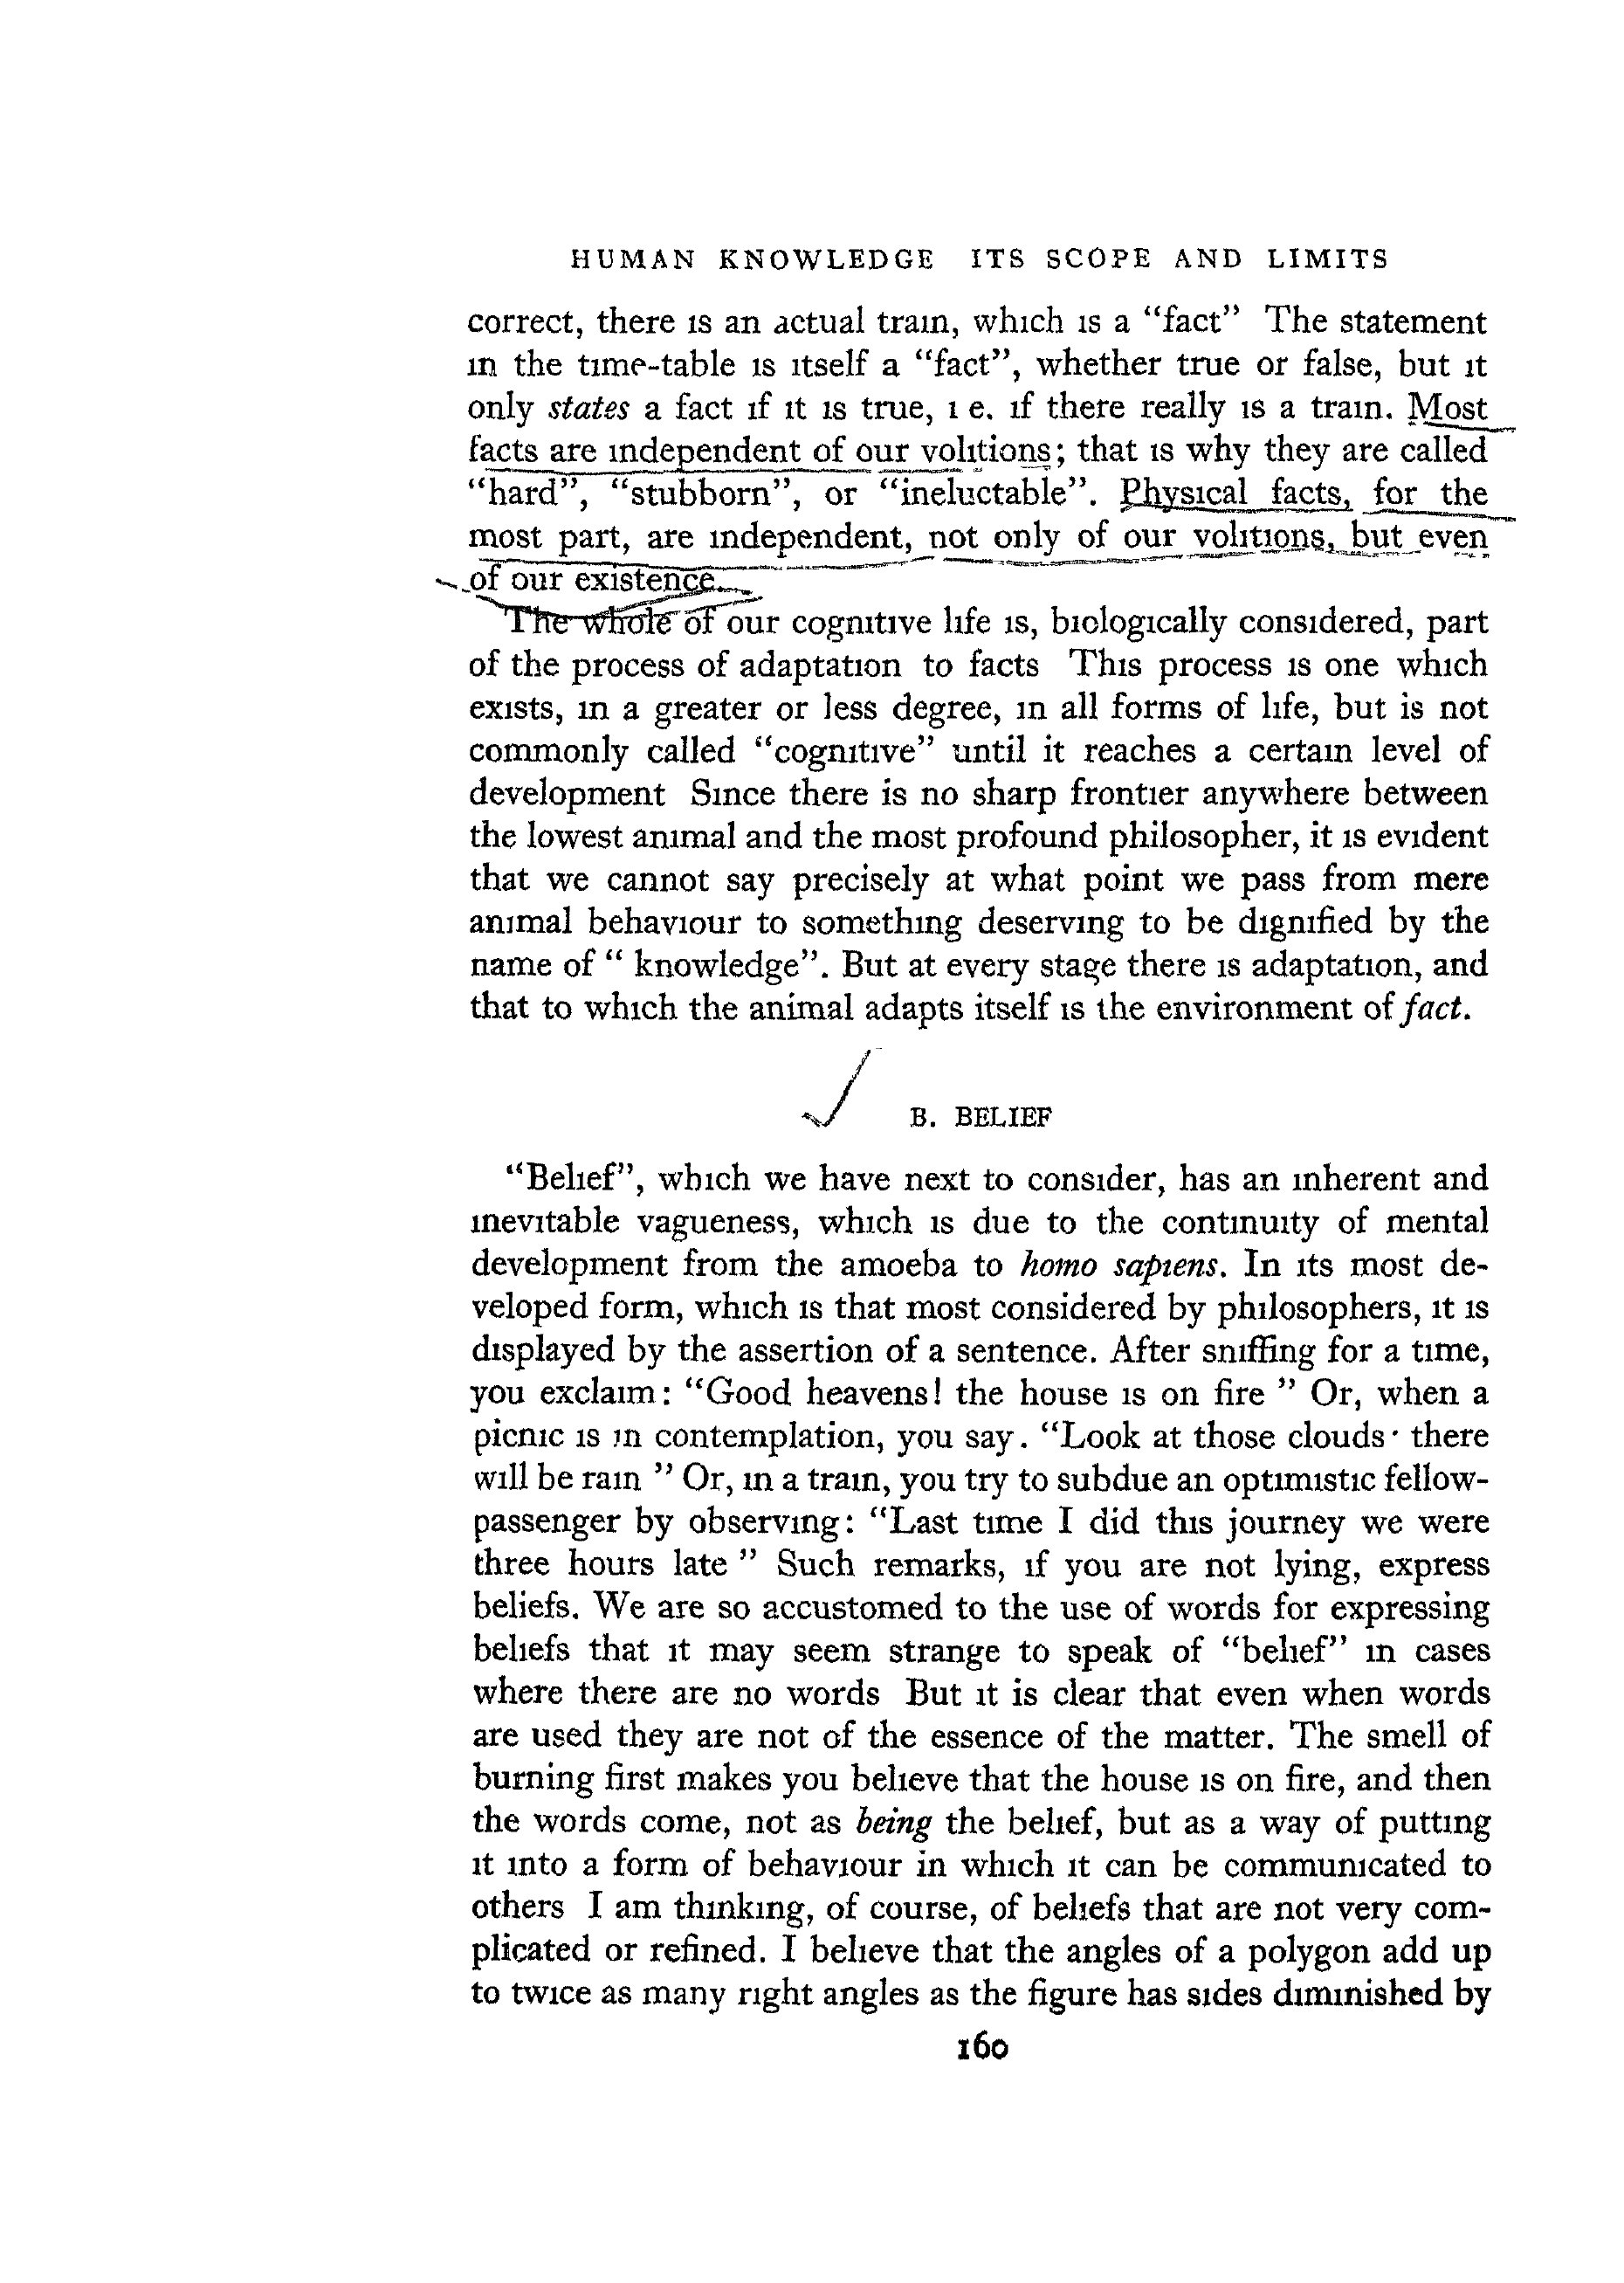 HUMAN KNOWLEDGE ITS SCOPE AND LIMITS
correct, there is an actual train, which is a “fact” The statement
in the time-table is itself a “fact”, whether true or false, but it
only states a fact if it is true, i e. if there really is a train. Most
facts are independent of our volitions; that is why they are called
“hard”, “stubborn”, or “ineluctable”. Physical facts, for the
most part, are independent, not only of our volitions, but even
of our existence.
The whole of our cognitive life is, biologically considered, part
of the process of adaptation to facts This process is one which
exists, in a greater or less degree, in all forms of life, but is not
commonly called “cognitive” until it reaches a certain level of
development Since there is no sharp frontier anywhere between
the lowest animal and the most profound philosopher, it is evident
that we cannot say precisely at what point we pass from mere
animal behaviour to something deserving to be dignified by the
name of “ knowledge”. But at every stage there is adaptation, and
that to which the animal adapts itself is the environment of fact.
B. BELIEF
“Belief”, which we have next to consider, has an inherent and
inevitable vagueness, which is due to the continuity of mental
development from the amoeba to homo sapiens. In its most de-
veloped form, which is that most considered by philosophers, it is
displayed by the assertion of a sentence. After sniffing for a time,
you exclaim: “Good heavens! the house is on fire ” Or, when a
picnic is in contemplation, you say. “Look at those clouds· there
will be rain ” Or, in a train, you try to subdue an optimistic fellow-
passenger by observing: “Last time I did this journey we were
three hours late ” Such remarks, if you are not lying, express
beliefs. We are so accustomed to the use of words for expressing
beliefs that it may seem strange to speak of “belief” in cases
where there are no words But it is clear that even when words
are used they are not of the essence of the matter. The smell of
burning first makes you believe that the house is on fire, and then
the words come, not as being the belief, but as a way of putting
it into a form of behaviour in which it can be communicated to
others I am thinking, of course, of beliefs that are not very com-
plicated or refined. I believe that the angles of a polygon add up
to twice as many right angles as the figure has sides diminished by
160